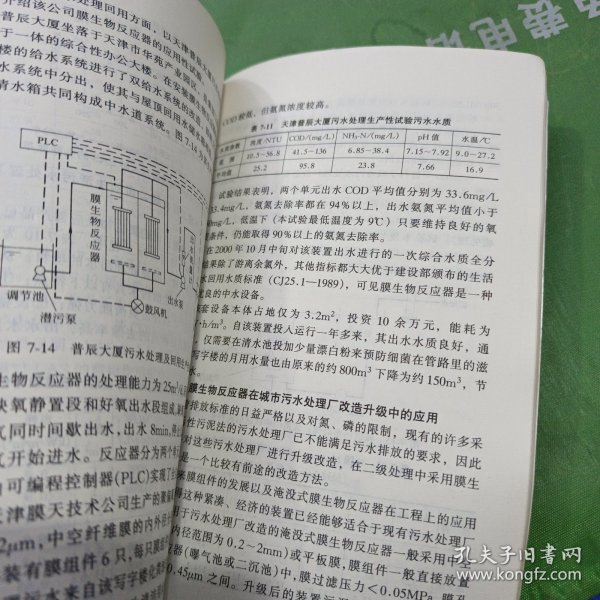 处理回用方面，以天津普辰大厦
介绍该公司膜生物反应器的应用
普辰大厦坐落于天津市华苑产业园区
于一体的综合性办公大楼。在安装膜
楼的给水系统进行了双给水系统的改造
水系统中分出，使其与屋顶回用水储水
清水箱共同构成中水系统。图7-14为
PLC
膜生物反应器
调节池
潜污泵
鼓风机
出水泵
图 7-14 普辰大厦污水处理及回用
生物反应器的处理能力为25m³/d
缺氧静置段和好氧出水段组成
气同时间歇出水，出水8min,停
气开始进水。反应器分为两个
可编程控制器(PLC)实现了
天津膜天技术公司生产的聚
2μm,中空纤维膜的内外径
装有膜组件6只,每只膜组
污水来自该写字楼化粪
COD较低，但氨氮浓度较高。
表 7-11 天津普辰大厦污水处理生产性试验污水水质
浊度/NTU COD/(mg/L) NH₃-N/(mg/L) pH值 水温/℃
10.5~36.8 41.5~136 6.85~38.4 7.15~7.92 9.0~27.2
平均值 25.2 95.8 23.8 7.66 16.9
试验结果表明，两个单元出水COD平均值分别为33.6mg/L
.4mg/L，氨氮去除率都在94%以上，出水氨氮平均值小于
0mg/L，低温下（本试验最低温度为9℃）只要维持良好的氧
条件，仍能取得90%以上的氨氮去除率。
在2000年10月中旬对该装置出水进行的一次综合水质全分
结果除了游离余氯外，其他指标都大大优于建设部颁布的生活
水回用水质标准（CJ25.1—1989），可见膜生物反应器是一种
优良的中水设备。
套设备本体占地仅为3.2m²，投资10余万元，能耗为
·h/m³。自该装置投入运行一年多来，其出水水质良好，通
仅需要在清水池投加少量漂白粉来预防细菌在管路里的滋
写字楼的月用水量也由原来的约800m³下降为约150m³，节
水。
膜生物反应器在城市污水处理厂改造升级中的应用
排放标准的日益严格以及对氮、磷的限制，现有的许多采
性污泥法的污水处理厂已不能满足污水排放的要求，因此
对这些污水处理厂进行升级改造，在二级处理中采用膜生
是一个比较有前途的改造方法。
来膜组件的发展以及淹没式膜生物反应器在工程上的应用
得这种紧凑、经济的装置已经能够适合于现有污水处理厂
用于污水处理厂改造的淹没式膜生物反应器一般采用中空
内径范围为0.2~2mm)或平板膜，膜组件一般直接放置
器（曝气池或二沉池）中，膜过滤压力<0.05MPa，膜孔
0.45μm之间。升级后的装置
孔夫子旧书网
www.kongfz.com